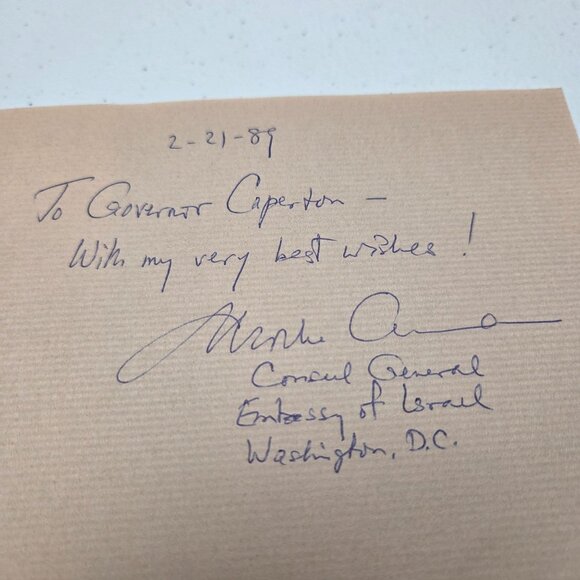 2-21-89
To Governor Caperton -
With my very best wishes!
Consul General
Embassy of Israel
Washington, D.C.